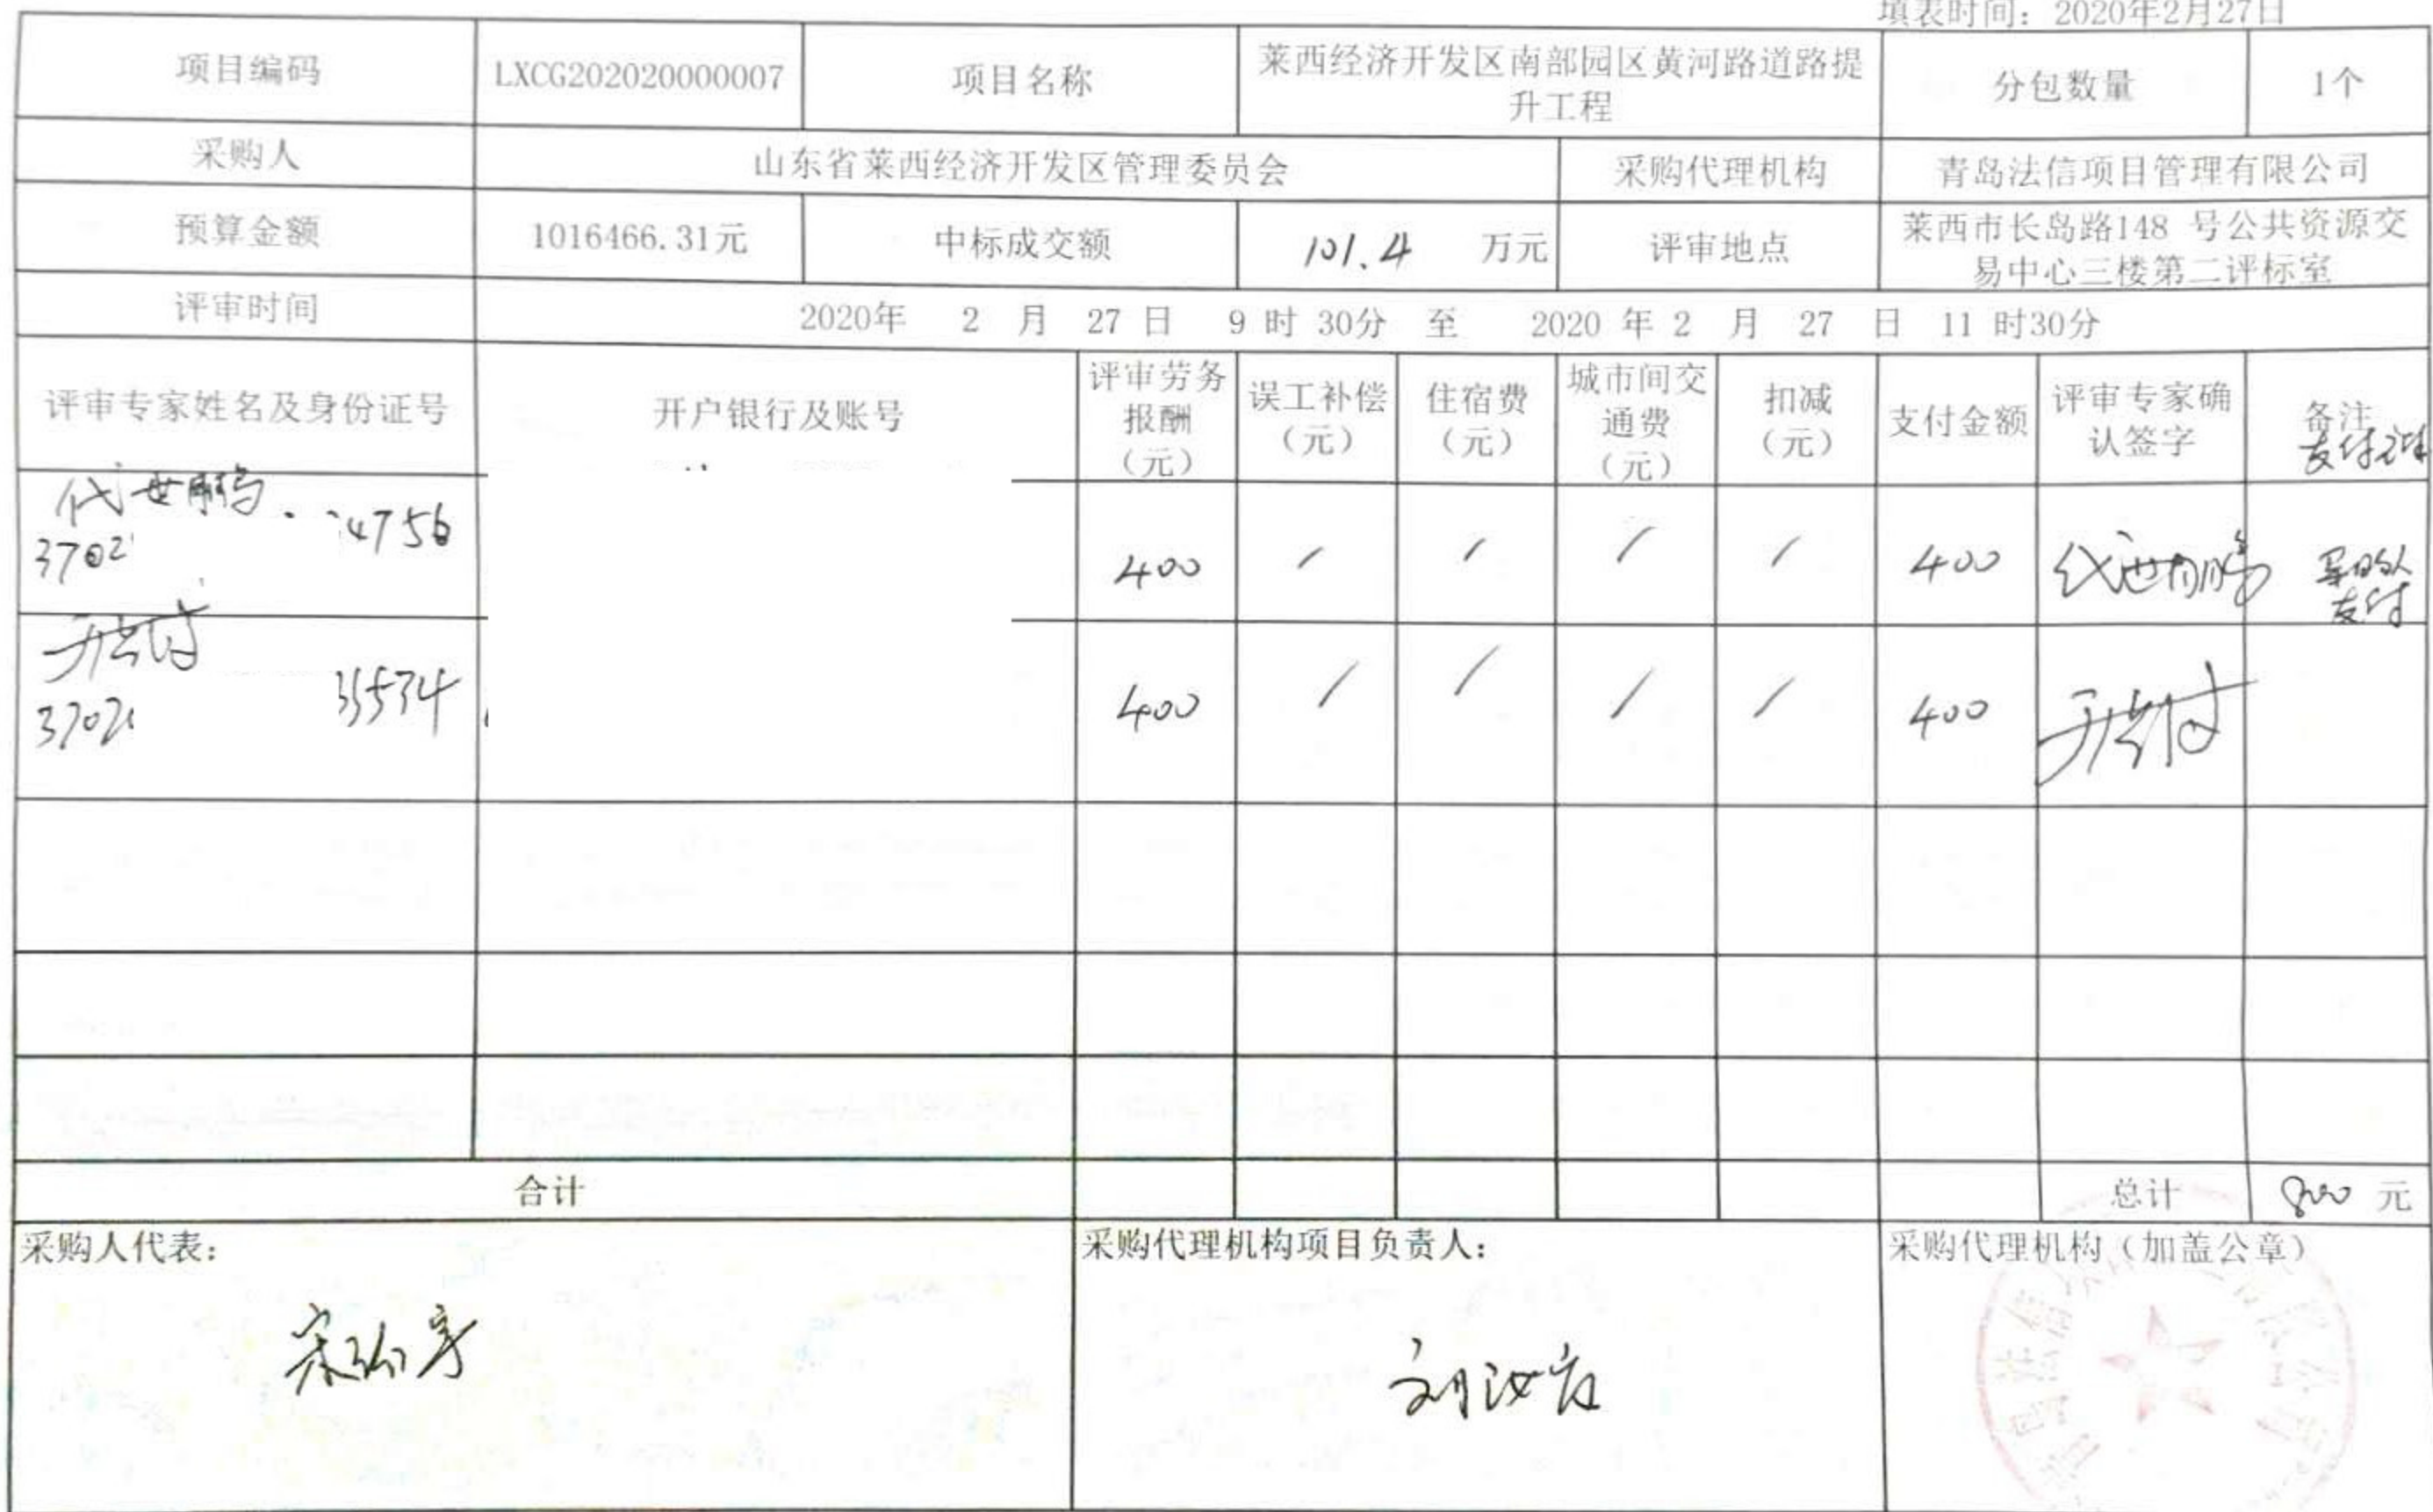 填表时间：2020年2月27日
项目编码 LXCG202020000007 项目名称 莱西经济开发区南部园区黄河路道路提
升工程 分包数量 1个
采购人 山东省莱西经济开发区管理委员会 采购代理机构 青岛法信项目管理有限公司
预算金额 1016466.31元 中标成交额 101.4 万元 评审地点 莱西市长岛路148 号公共资源交
易中心三楼第二评标室
评审时间 2020年 2 月 27 日 9 时 30分 至 2020 年 2 月 27 日 11 时30分
评审专家姓名及身份证号 开户银行及账号
评审劳务
报酬
（元）
误工补偿
（元）
住宿费
（元）
城市间交
通费
（元）
扣减
（元）
支付金额
评审专家确
认签字
备注
代世鹏
3702 4756
400 / / / / 400 代世鹏
采购人
支付
3702 35534
400 / / / / 400
合计 总计 800 元
采购人代表：
采购代理机构项目负责人：
采购代理机构（加盖公章）